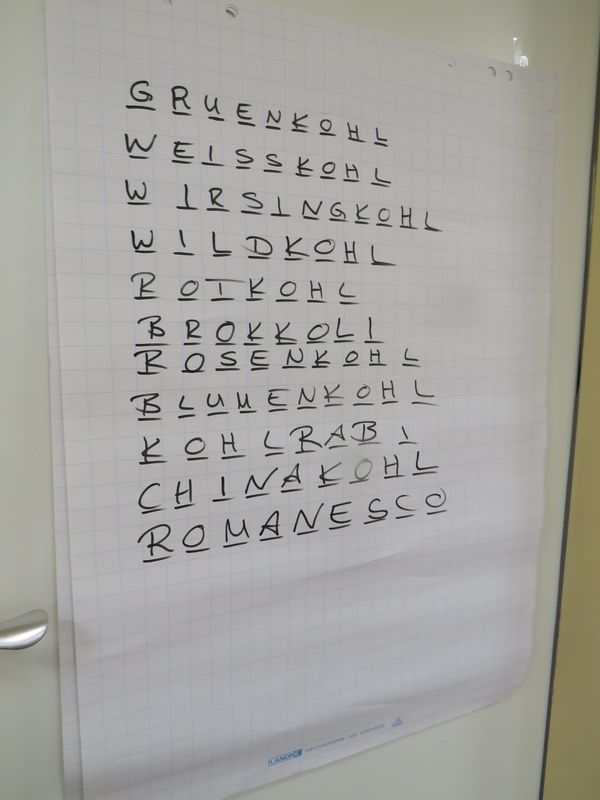 GRUENKOHL
WEISSKOHL
WIRSINGKOHL
WILDKOHL
ROTKOHL
BROKKOLI
ROSENKOHL
BLUMENKOHL
KOHLRABI
CHINAKOHL
ROMANESCO
LANDRÉ